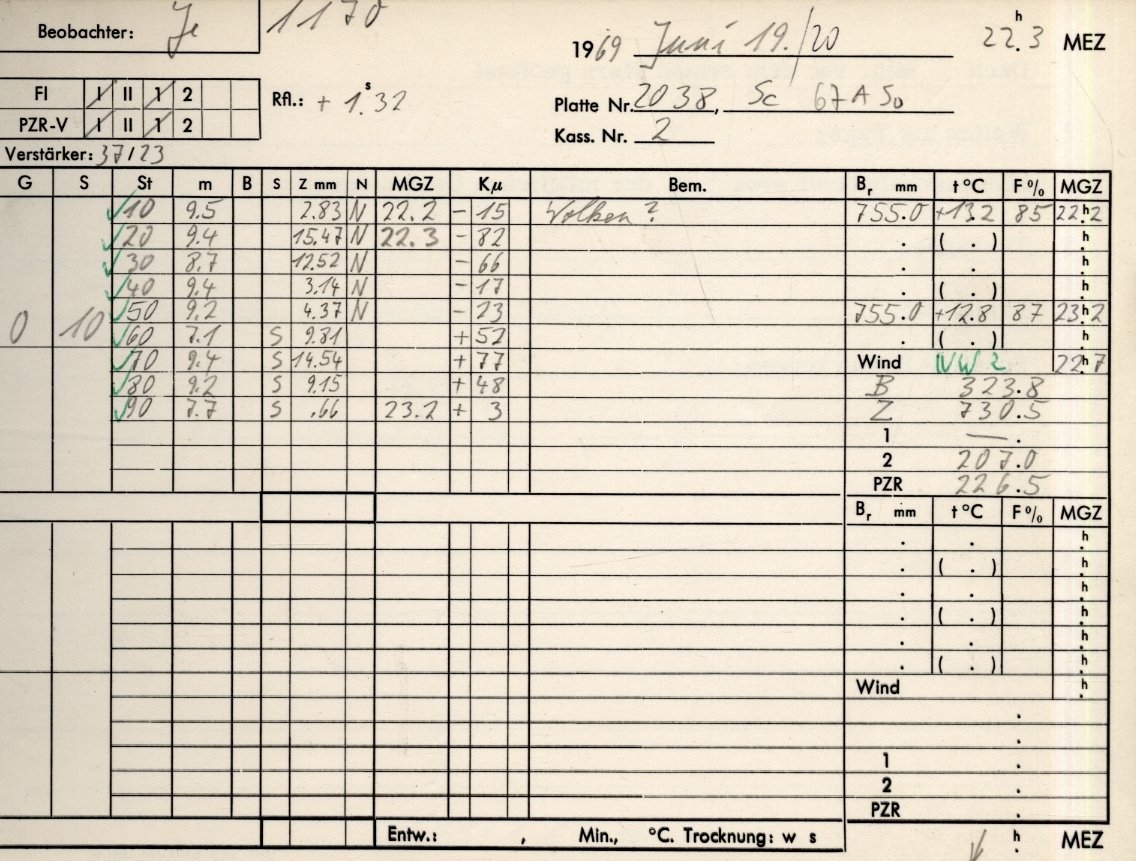 Beobachter: Je 1170
1969 Juni 19./20 22.3 h MEZ
FI I II 1 2
PZR-V I II 1 2
Rfl.: + 1.32 s
Platte Nr. 2038, Sc 67A50
Kass. Nr. 2
Verstärker: 37/23
G S St m B S Z mm N MGZ Kμ Bem. Br mm t°C F% MGZ
10 9.5 2.83 N 22.2 - 15 Wolken? 755.0 +13.2 85 22.2 h
20 9.4 15.47 N 22.3 - 82 . ( . ) h
30 8.7 12.52 N - 66 . . h
40 9.4 3.14 N - 17 . ( . ) h
0 10 50 9.2 4.37 N - 23 755.0 +12.8 87 23.2 h
60 7.1 S 9.81 + 52 . ( . ) h
70 9.4 S 14.54 + 77 Wind NW 2 22.7 h
80 9.2 S 9.15 + 48 B 323.8
90 7.7 S .66 23.2 + 3 Z 730.5
1 — .
2 207.0
PZR 226.5
Br mm t°C F% MGZ
. . h
. ( . ) h
. . h
. ( . ) h
. . h
. ( . ) h
Wind h
.
.
1 .
2 .
PZR .
Entw.: , Min., °C. Trocknung: w s h MEZ